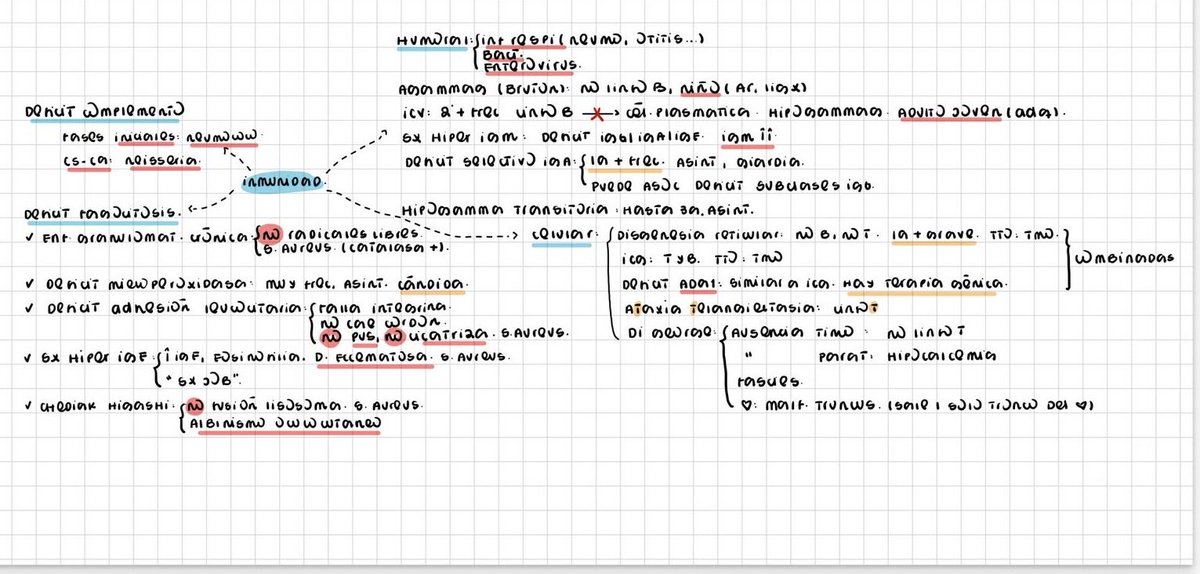 Humoral: inf respi (neumo, otitis...)
Bact.
Enterovirus.
Agammag (Bruton): no linfo B, niño (Ac, ligx)
icv: 2ª + frec linfo B ✗→ cél. plasmática. Hipogammag. Adulto joven (adq).
sx hiper igm: deficit igG igA igE. igm ↑↑
Deficit selectivo igA: la + frec. Asint, giardia.
Puede asoc deficit subclases igG.
Hipogamma transitoria: hasta 3a. Asint.
Deficit complemento
Fases iniciales: neumococo.
C5-C9: neisseria.
inmunidad
Deficit fagocitosis.
✓ Enf. granulomat. crónica: no radicales libres.
S. aureus. (catalasa +).
✓ Deficit mieloperoxidasa: muy frec. Asint. Cándida.
✓ Deficit adhesión leucocitaria: falla integrina.
no cae cordón.
no pus, no cicatriza. S. aureus.
✓ sx hiper igE: ↑ igE, eosinofilia. D. eccematosa. S. aureus.
"sx Job".
✓ Chediak Higashi: no fusión lisosoma. S. aureus.
Albinismo oculocutáneo
Celular: Disgenesia reticular: no B, no T. la + grave. TTO: TMO.
icg: T y B. TTO: TMO
Deficit ADA1: similar a icg. Hay terapia génica.
Ataxia telangiectasia: linf T
Di George: Ausencia timo: no linf T
" parat: Hipocalcemia
Fascies.
♡: malf. troncos. (sale 1 solo tronco del ♡)
combinadas